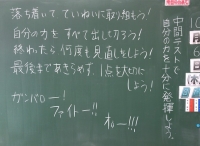 中間テストで
自分の力を十分に発揮しよう。
落ち着いて ていねいに取り組もう!
自分の力を すべて出してガろう!
終わったら 何度も見直しをしよう!
最後まであきらめず、1点を大切に
しよう!
ガンバロー!
ファイトー!!
オー!!!
10
月
6
日